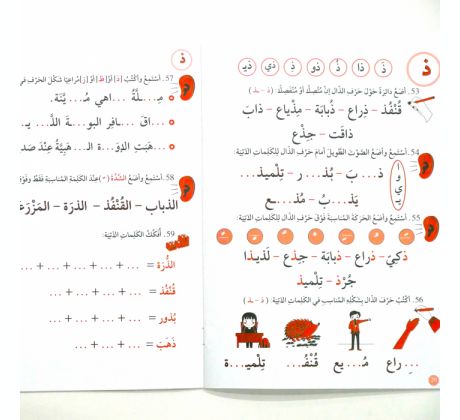 ذ
ذَ ذَا ذُ ذُو ذِ ذِي ذَيـ
53. أضَعُ دائِرَةً حَوْلَ حَرْفِ الذّال إنْ مُتَّصِلًا أوْ مُنْفَصِلًا: (ذ - ـذ)
قُنْفُذ – ذِراع – ذُبابَة – مِذْياع – ذابَ
ذاقَت – جِذْع
54. أسْتَمِعُ وأضَعُ الصّوْتَ الطّويلَ أمامَ حَرْفِ الذّال لِلكَلِماتِ الآتِيَة:
ا و ي
ذ... بَ – بُذ... ر – تِلْميذ...
يَذ... بُ – مُذ... ع
55. أسْتَمِعُ وأضَعُ الحَرَكَةَ المُناسِبَةَ فَوْقَ حَرْفِ الذّال لِلكَلِماتِ الآتِيَة:
ذكِيّ – ذراع – ذبابَة – جِذع – لَذيذا
جُرْذ – تِلْميذ
56. أكْتُبُ حَرْفَ الذّال بِشَكْلِهِ المُناسِبِ في الكَلِماتِ الآتِيَة: (ذ - ـذ)
...راع مُـ...يع قُنْفُـ... تِلْميـ...ة
ذ
57. أسْتَمِعُ وأكْتُبُ [ذ] أوْ [ظ] أوْ [ز] مُراعِيًا شَكْلَ الحَرْفِ في
مِـ...ـلَّةُ ...اهي مُـ...يَّنَة.
...اقَ ...افِر البو...ـة الذَّ...يـ
...هَبَتِ الوَ...ة الـ...هَبِيَّةُ عِنْدَ صَد
58. أسْتَمِعُ وأضَعُ الشَّدَّةَ (ّ) عِنْدَ الكَلِمَةِ المُناسِبَة فَقَطْ وفَوْقَ
الذباب – القُنْفُذ – الذرَة – المَزْرَعَـ
59. أُفَكِّكُ الكَلِماتِ الآتِيَة:
الذُّرَة = ... + ... + ... + ... + ...
قُنْفُذ = ... + ... + ... + ...
بُذور = ... + ... + ... + ...
ذَهَبَ = ... + ... + ...